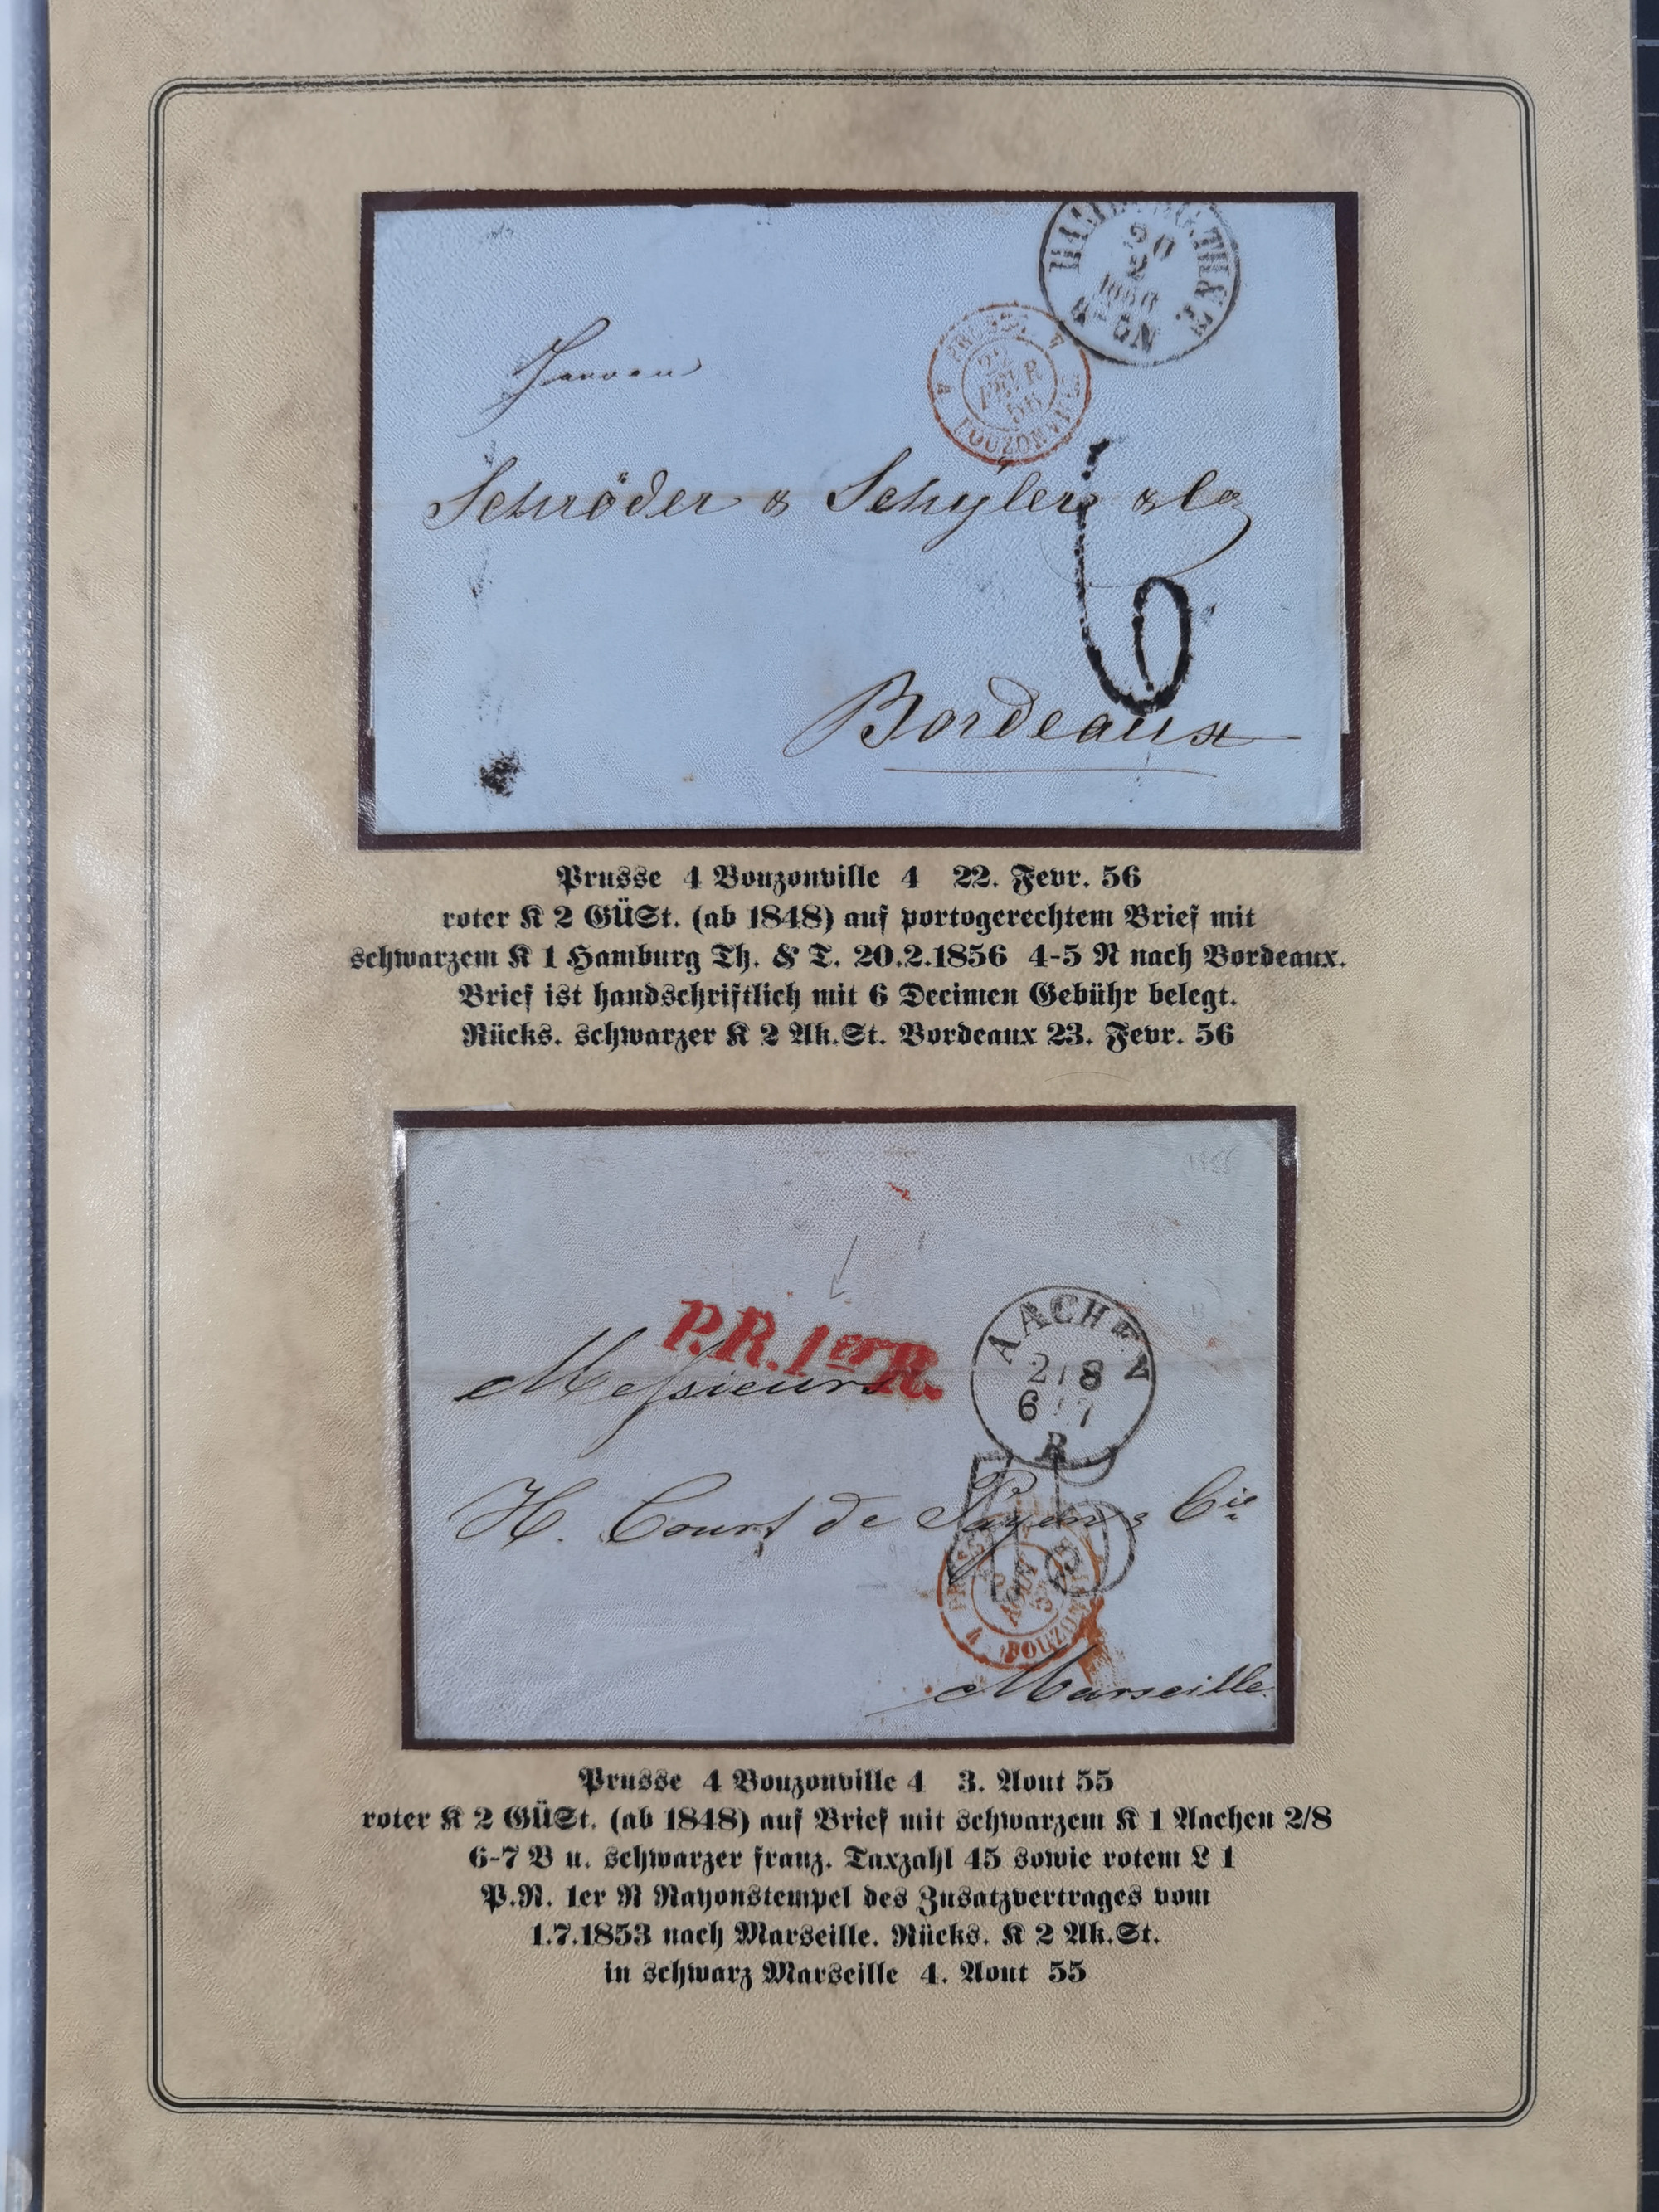 HAMBURG TH. & T.
20
2
1856
4-5 N
4 PRUSSE 4
22
FEVR
56
BOUZONVILLE
Herren
Schröder & Schÿler & Co
6
Bordeaux
Prusse 4 Bouzonville 4 22. Fevr. 56
roter K 2 GÜSt. (ab 1848) auf portogerechtem Brief mit
schwarzem K 1 Hamburg Th. & T. 20.2.1856 4-5 N nach Bordeaux.
Brief ist handschriftlich mit 6 Decimen Gebühr belegt.
Rücks. schwarzer K 2 Ak.St. Bordeaux 23. Fevr. 56
P.R. 1er R.
AACHEN
2 8
6 7
Messieurs
H. Court de Payen & Cie
PRUSSE
3
AOUT
55
4 BOUZONVILLE
Marseille
Prusse 4 Bouzonville 4 3. Aout 55
roter K 2 GÜSt. (ab 1848) auf Brief mit schwarzem K 1 Aachen 2/8
6-7 V u. schwarzer franz. Taxzahl 45 sowie rotem L 1
P.R. 1er R Rayonstempel des Zusatzvertrages vom
1.7.1853 nach Marseille. Rücks. K 2 Ak.St.
in schwarz Marseille 4. Aout 55